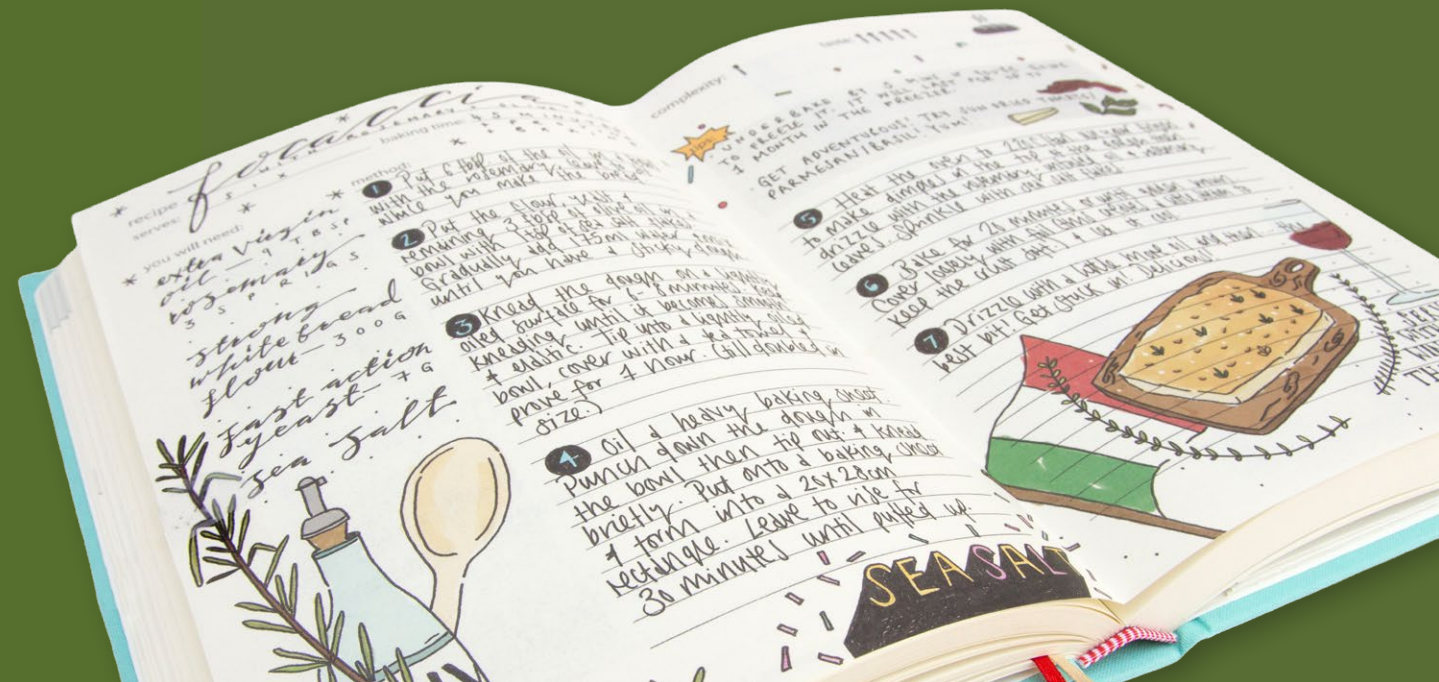 recipe focaccia
WITH ROSEMARY & SEA
serves: SIX
baking time: 45 MINUTES
you will need:
extra virgin
oil — 9 TBSP
rosemary
3 SPRIGS
strong
white bread
flour — 300G
fast action
yeast — 7G
sea salt
method:
1 Put 6 tbsp of the oil in a
with the rosemary. Leave
while you make the
2 Put the flour, yeast &
remaining 3 tbsp of olive oil in a
bowl with 1 tsp of sea salt
Gradually add 175ml water
until you have a sticky dough.
3 Knead the dough on a lightly
oiled surface for 6-8 minutes
kneading until it becomes smooth
& elastic. Tip into a lightly oiled
bowl, cover with a tea towel &
prove for 1 hour. (till doubled in
size)
4 Oil a heavy baking sheet.
Punch down the dough in
the bowl then tip out & knead
briefly. Put onto a baking sheet
& form into a 20x28cm
rectangle. Leave to rise for
30 minutes until puffed up.
SEA SALT
complexity:
taste:
TIPS!
UNDERBAKE BY 5 MINS IF YOU'RE GOING
TO FREEZE IT. IT WILL LAST FOR UP TO
1 MONTH IN THE FREEZER.
· GET ADVENTUROUS! TRY SUN DRIED TOMATOES/
PARMESAN/BASIL! YUM!
5 Heat the oven to 220°C but
to make dimples in the
drizzle with the rosemary infused oil &
leaves. Sprinkle with
6 Bake for 20 minutes or until golden brown.
Cover loosely with foil
keep the crust soft, & let it cool
7 Drizzle with a little more oil and then... the
best bit! Get stuck in! Delicious!